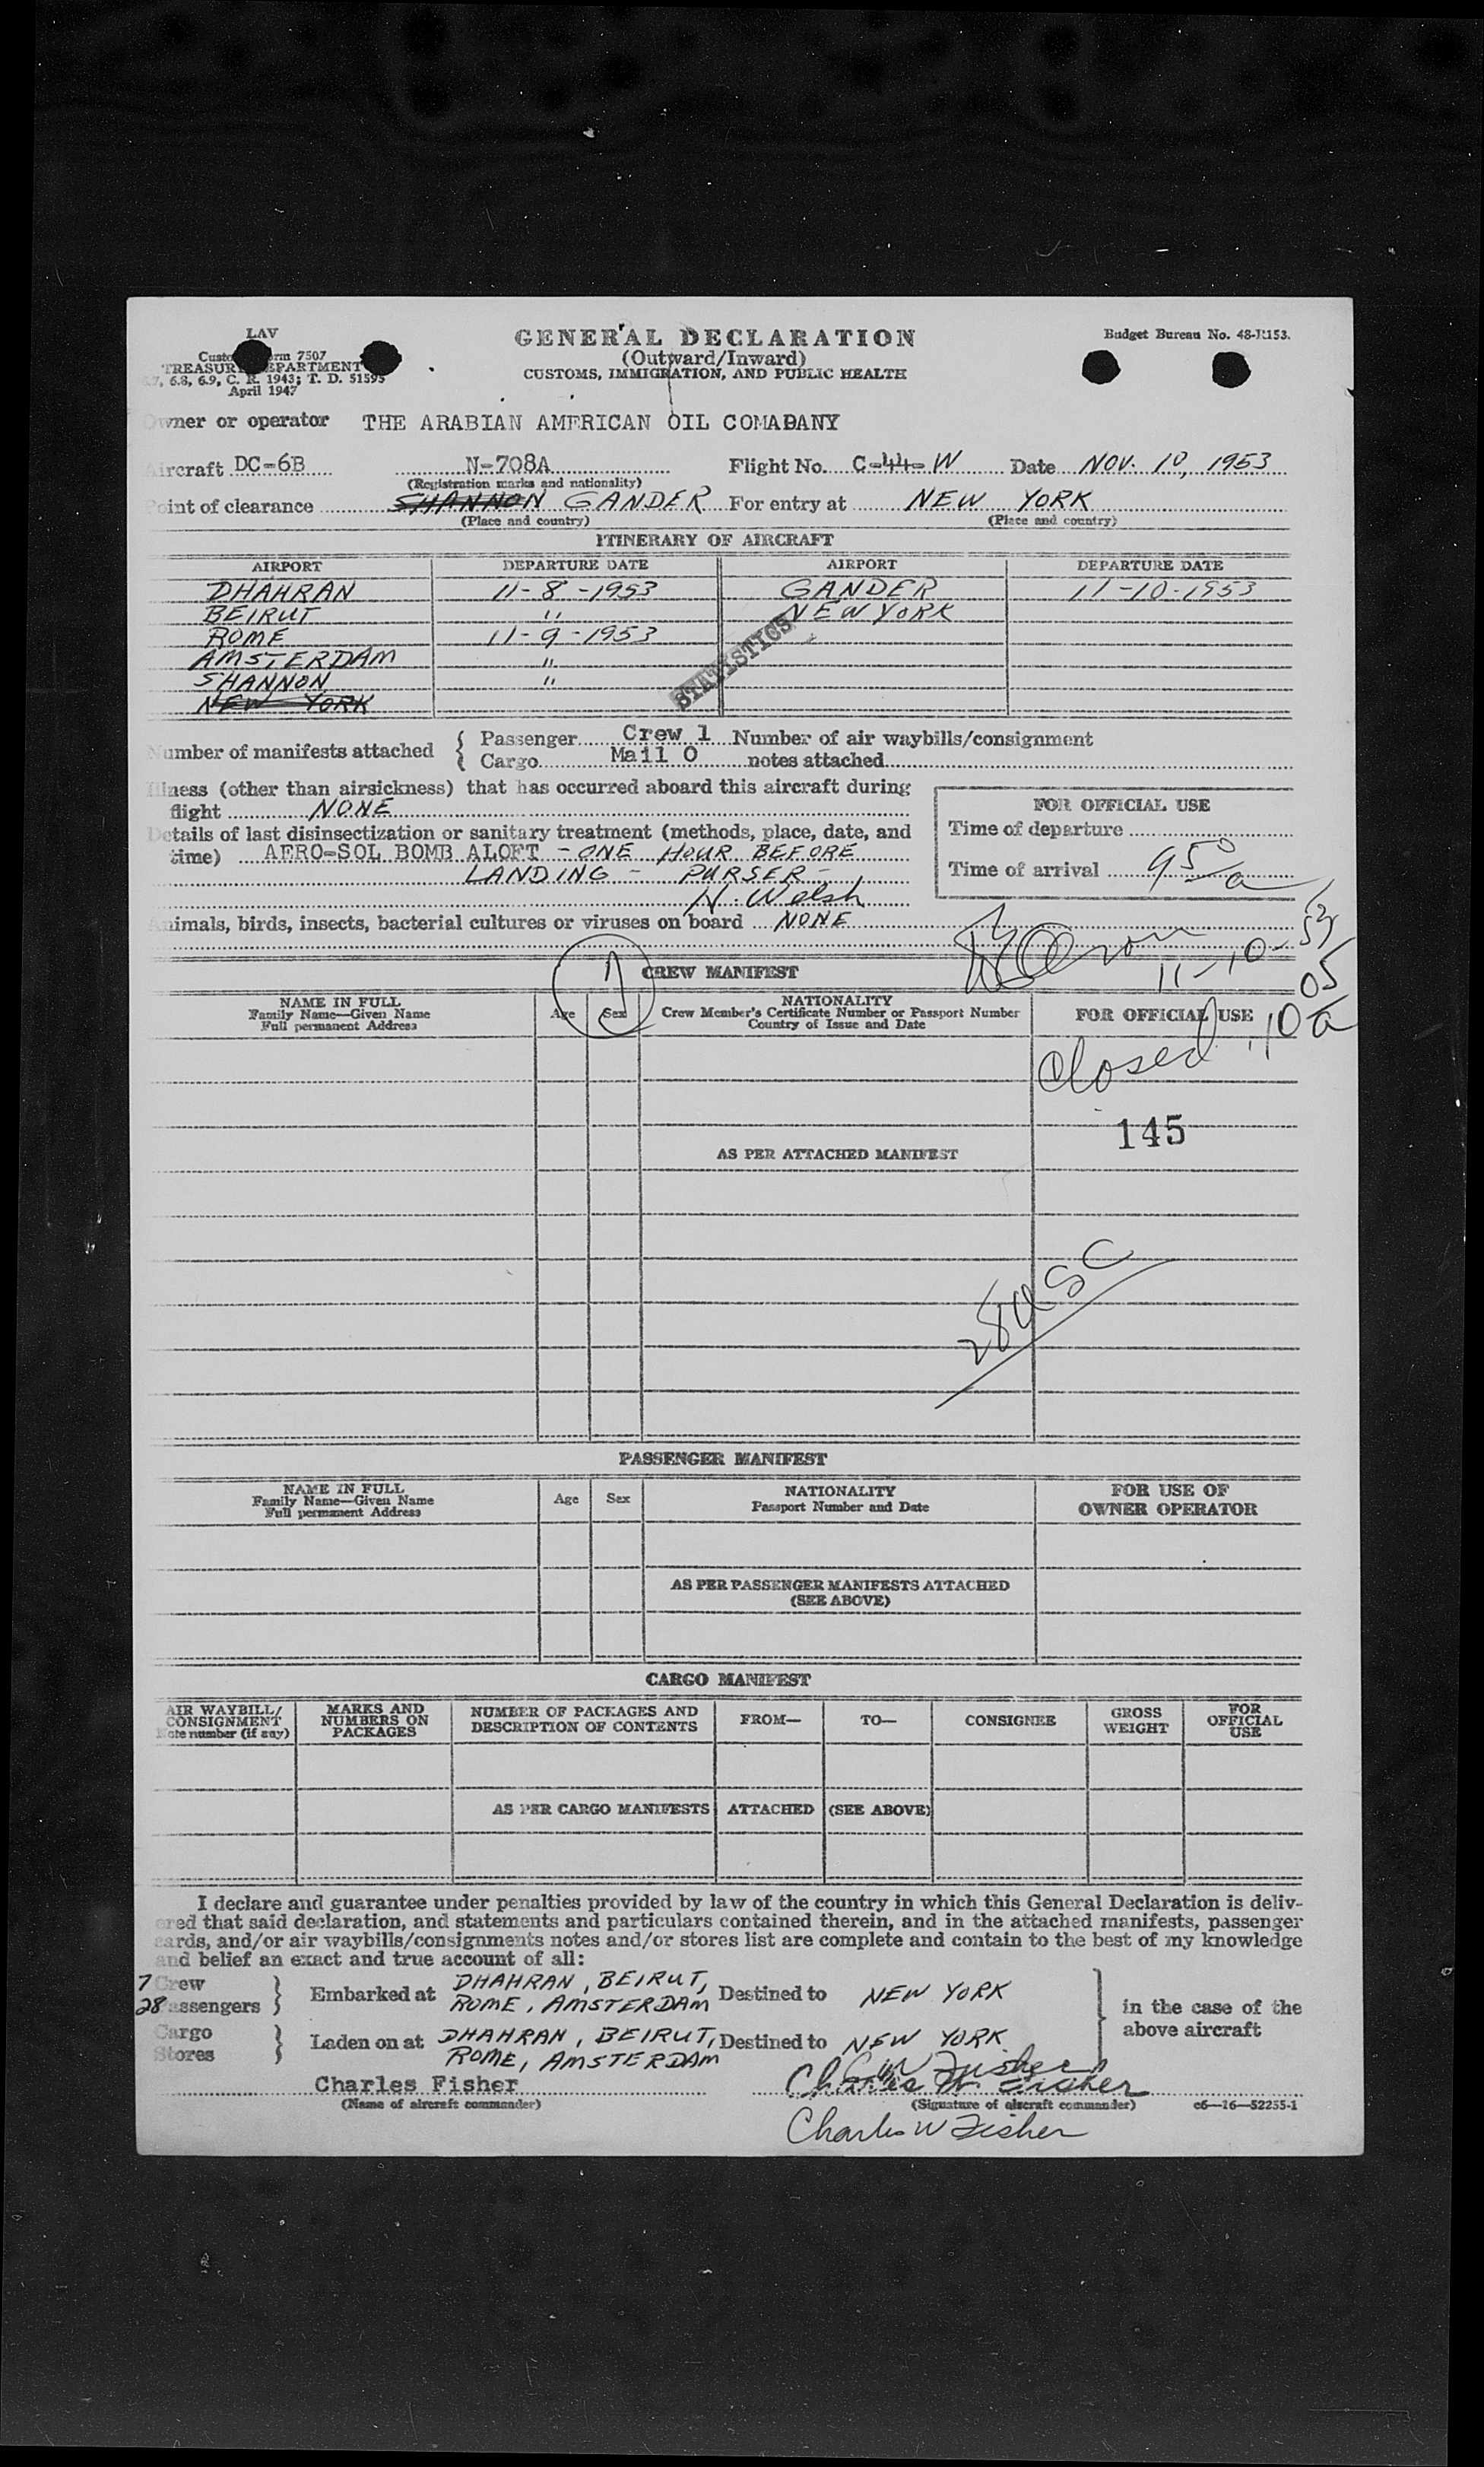 LAV
GENERAL DECLARATION
Budget Bureau No. 48-R153.
(Outward/Inward)
CUSTOMS, IMMIGRATION, AND PUBLIC HEALTH
7507
TREASURY DEPARTMENT
6.8, 6.9, C. R. 1943; T. D. 51595
April 1947
Owner or operator THE ARABIAN AMERICAN OIL COMADANY
Aircraft DC-6B N-708A Flight No. C-44-W Date NOV. 10, 1953
(Registration marks and nationality)
Point of clearance SHANNON GANDER For entry at NEW YORK
(Place and country) (Place and country)
ITINERARY OF AIRCRAFT
AIRPORT DEPARTURE DATE AIRPORT DEPARTURE DATE
DHAHRAN 11-8-1953 GANDER 11-10-1953
BEIRUT " NEW YORK
ROME 11-9-1953
AMSTERDAM "
SHANNON "
NEW YORK
STATISTICS
Number of manifests attached { Passenger Crew 1 Number of air waybills/consignment
Cargo Mail 0 notes attached
Illness (other than airsickness) that has occurred aboard this aircraft during
flight NONE
FOR OFFICIAL USE
Details of last disinsectization or sanitary treatment (methods, place, date, and
Time of departure
time) AERO-SOL BOMB ALOFT - ONE HOUR BEFORE
LANDING - PURSER -
Time of arrival 9 50 a
N. Welsh
Animals, birds, insects, bacterial cultures or viruses on board NONE
11-10-53
CREW MANIFEST
NAME IN FULL
Family Name—Given Name
Full permanent Address
Age Sex
NATIONALITY
Crew Member's Certificate Number or Passport Number
Country of Issue and Date
FOR OFFICIAL USE
Closed 10 05 a
145
AS PER ATTACHED MANIFEST
28 USC
PASSENGER MANIFEST
NAME IN FULL
Family Name—Given Name
Full permanent Address
Age Sex
NATIONALITY
Passport Number and Date
FOR USE OF
OWNER OPERATOR
AS PER PASSENGER MANIFESTS ATTACHED
(SEE ABOVE)
CARGO MANIFEST
AIR WAYBILL/
CONSIGNMENT
Note number (if any)
MARKS AND
NUMBERS ON
PACKAGES
NUMBER OF PACKAGES AND
DESCRIPTION OF CONTENTS
FROM— TO— CONSIGNEE
GROSS
WEIGHT
FOR
OFFICIAL
USE
AS PER CARGO MANIFESTS ATTACHED (SEE ABOVE)
I declare and guarantee under penalties provided by law of the country in which this General Declaration is deliv-
ered that said declaration, and statements and particulars contained therein, and in the attached manifests, passenger
cards, and/or air waybills/consignments notes and/or stores list are complete and contain to the best of my knowledge
and belief an exact and true account of all:
7 Crew
28 Passengers } Embarked at DHAHRAN, BEIRUT,
ROME, AMSTERDAM Destined to NEW YORK
in the case of the
above aircraft
Cargo
Stores } Laden on at DHAHRAN, BEIRUT,
ROME, AMSTERDAM Destined to NEW YORK
CW Fisher
Charles Fisher Charles W. Fisher
(Name of aircraft commander) (Signature of aircraft commander) c6—16—52255-1
Charles W Fisher